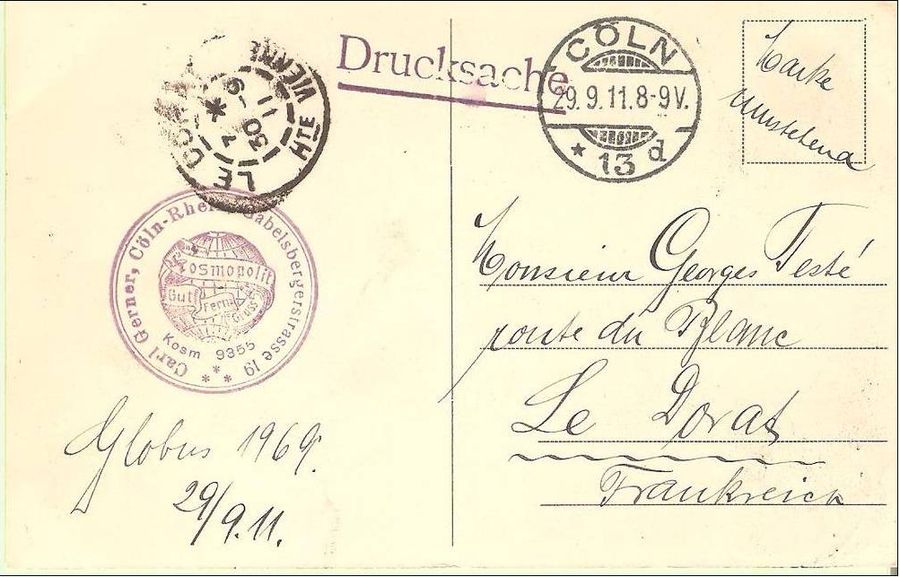 Drucksache
CÖLN
29.9.11.8-9V.
* 13 d
Marke
Umstehend
LE DORAT
7-9
30
11
HTE VIENNE
Carl Gerner, Cöln-Rhein, Gabelsbergerstrasse 19
Kosmopolit
Gut Fern Gruss
Kosm 9355
Monsieur Georges Testé
route du Blanc
Le Dorat
Frankreich
Globus 1969.
29/9.11.